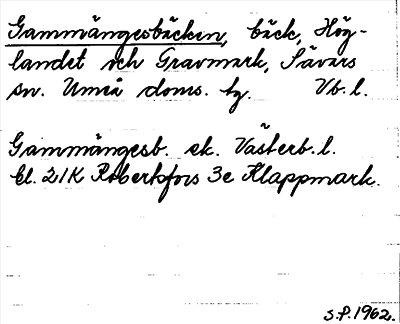 Gammängesbäcken, bäck, Hög-
landet och Gravmark, Sävars
sn. Umeå doms. hg. Vb. l.
Gammängesb. ek. Västerb. l.
bl. 21K Robertsfors 3e Klappmark.
S.P. 1962.